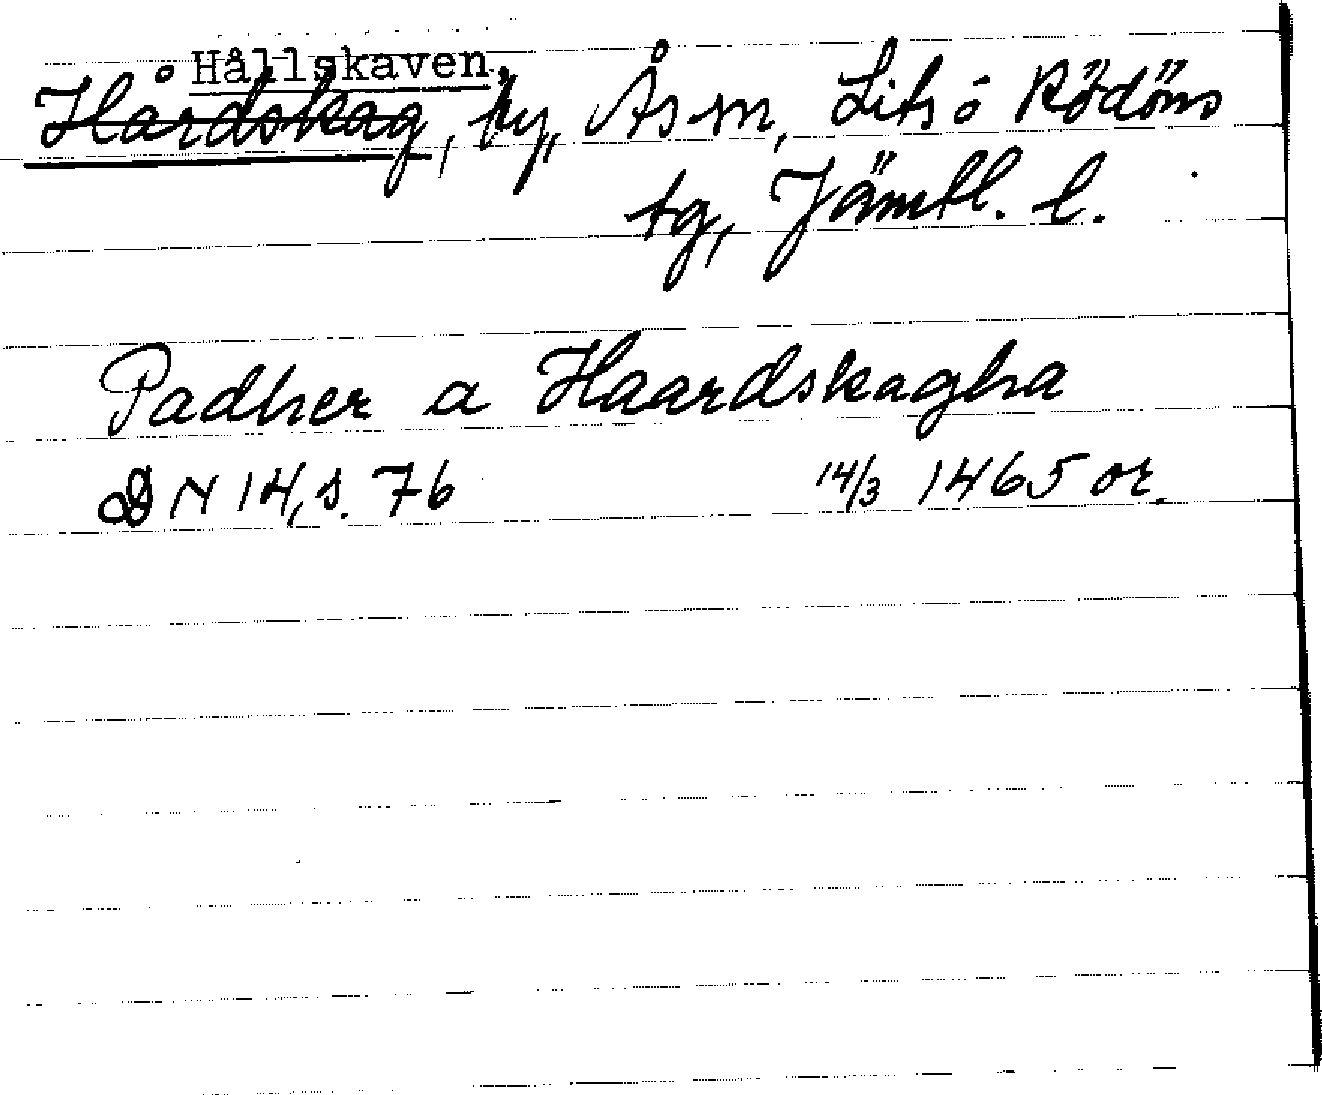 Hållskaven,
Hårdskag, by, Ås sn, Lits o Rödöns
tg, Jämtl. l.
Padher a Haardskagha
DN 14, s. 76 14/3 1465 or.